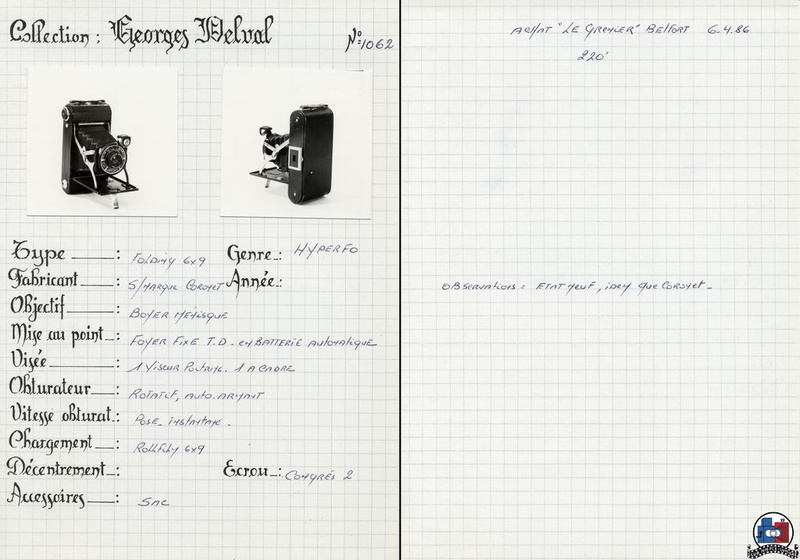 Collection : Georges Delval
Nº 1062
Type : Folding 6x9
Genre : HYPERFO
Fabricant : S/Marque Coronet
Année :
Objectif : BOYER MÉNISQUE
Mise au point : FOYER FIXE T.D. en BATTERIE AUTOMATIQUE
Visée : 1 Viseur Poitrine. 1 A CADRE
Obturateur : ROTATIF, AUTO.ARMANT
Vitesse obturat. : POSE_ instantané.
Chargement : Rollfilm 6x9
Décentrement :
Ecrou : CONGRÉS 2
Accessoires : SAC
ACHAT "LE GRENIER" BELFORT 6.4.86
220
OBSERVATIONS : ETAT NEUF, idem que Coronet_